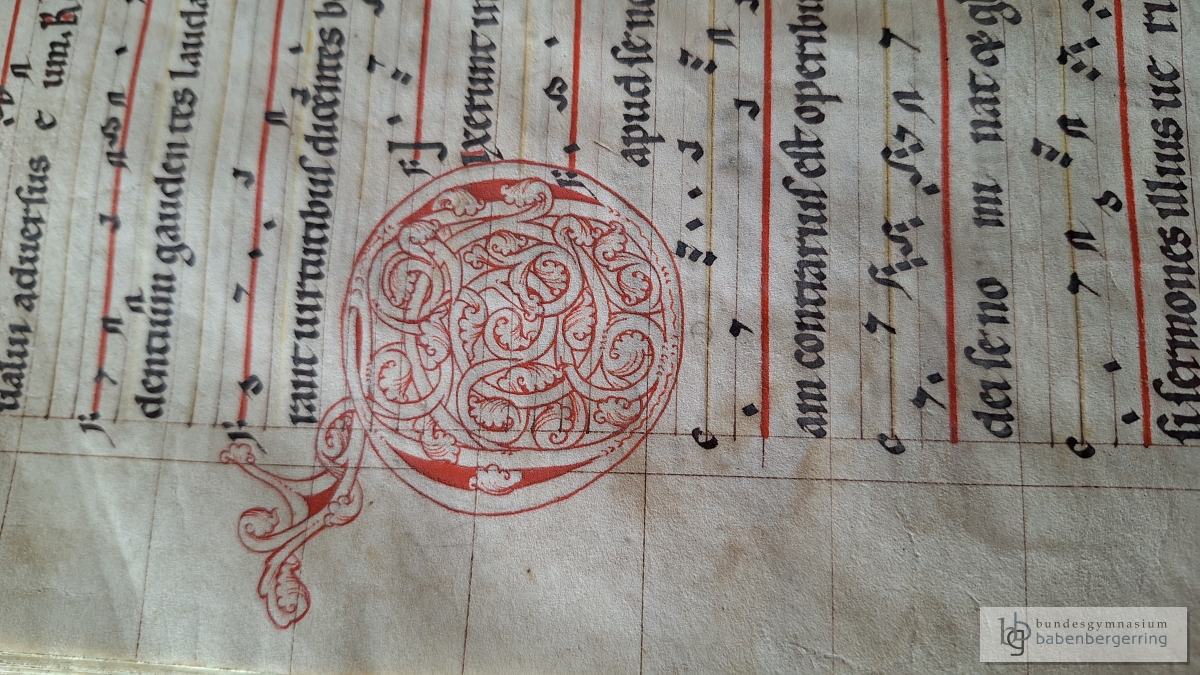 ualui aduersus e um. R
dentium gauden tes lauda
rant uirtutibus dicentes b
Dixerunt im
apud se no
am contrarius est operibu
dei se no mi nat & gl
si sermones illius ue ri
bundesgymnasium
babenbergerring